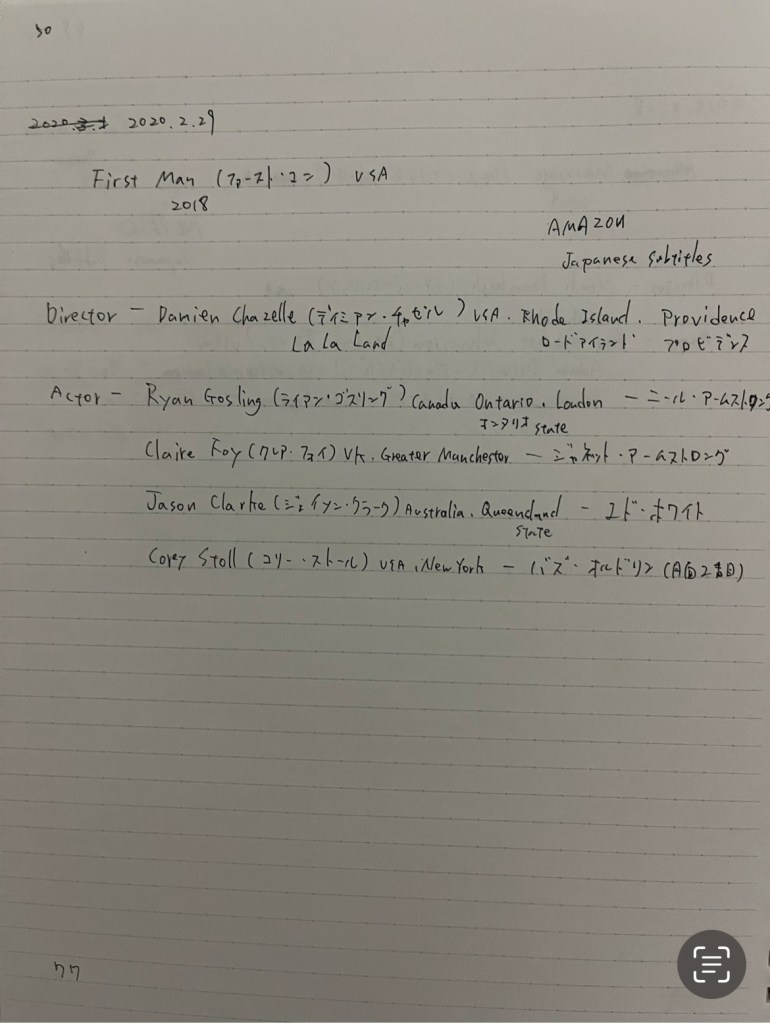 50
2020.3.1 2020.2.29
First Man (ファースト・マン) USA
2018
AMAZON
Japanese Subtitles
Director – Damien Chazelle (デイミアン・チャゼル) USA. Rhode Island. Providence
La La Land ロードアイランド プロビデンス
Actor – Ryan Gosling (ライアン・ゴズリング) Canada Ontario. London – ニール・アームストロング
オンタリオ state
Claire Foy (クレア・フォイ) UK. Greater Manchester – ジャネット・アームストロング
Jason Clarke (ジェイソン・クラーク) Australia. Queensland – エド・ホワイト
state
Corey Stoll (コリー・ストール) USA. New York – バズ・オルドリン (月面2番目)
77